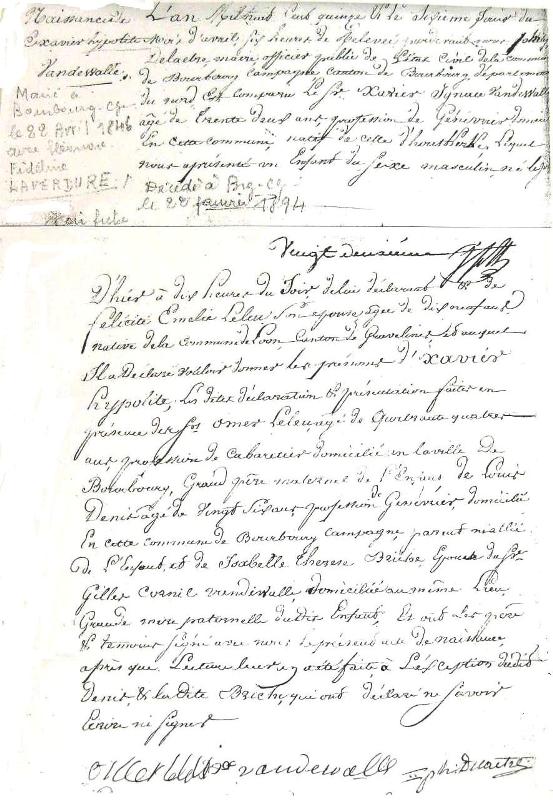 Naissance de L'an Mil huit cent quinze & le dixième jour du
Exavier hypolite mois d'avril, six heures de relevée, pardevant nous
Vandewalle. Delaetre, maire, officier public de l'Etat Civil de la commune
de Bourbourg Campagne canton de Bourbourg, departement
Marié à
Bourbourg-Cgne
le 22 Avril 1846
avec Eléonore
Fidéline
LAVERDURE!
du nord Est comparu le Sr. Xavier Ignace Vandewalle
agé de trente deux ans profession de Génévrier domicilié
En cette Commune, natif de celle d'houtkerke, Lequel
nous a présenté un Enfant du sexe masculin né le jour
Décédé à Brg-Cg
le 22 janvier 1894
Voir fiche
Vingt deuxième
D'hier à dix heures du Soir de lui déclarant & de
felicité Emelie Leleu son epouse agée de dix neuf ans
native de la Commune de Loon, Canton de Gravelines, & auquel
Il a Declaré vouloir donner les prénoms d'Exavier
hyppolite, Les dites déclaration & présentation faites en
présence des Srs omer Leleu, agé de Quarante quatre
ans, profession de Cabaretier domicilié en la ville De
Bourbourg, Grand père maternel de l'Enfant & de Louis
Denis agé de Vingt Six ans profession de Génévrier, domicilié
En cette commune de Bourbourg Campagne, parent ni allié
De l'Enfant, et de Isabelle Therese Briche Epouse du Sr
Gilles Cornil vendewalle domiciliée au même Lieu,
Grande mere paternelle du dit Enfant, Et ont les père
& temoins signé avec nous le présent acte de naissance,
après que Lecture leur y a été faite, à L'exception dudit
Denis, & la dite Briche, qui ont déclaré ne savoir
Ecrire ni signer
vandewalle